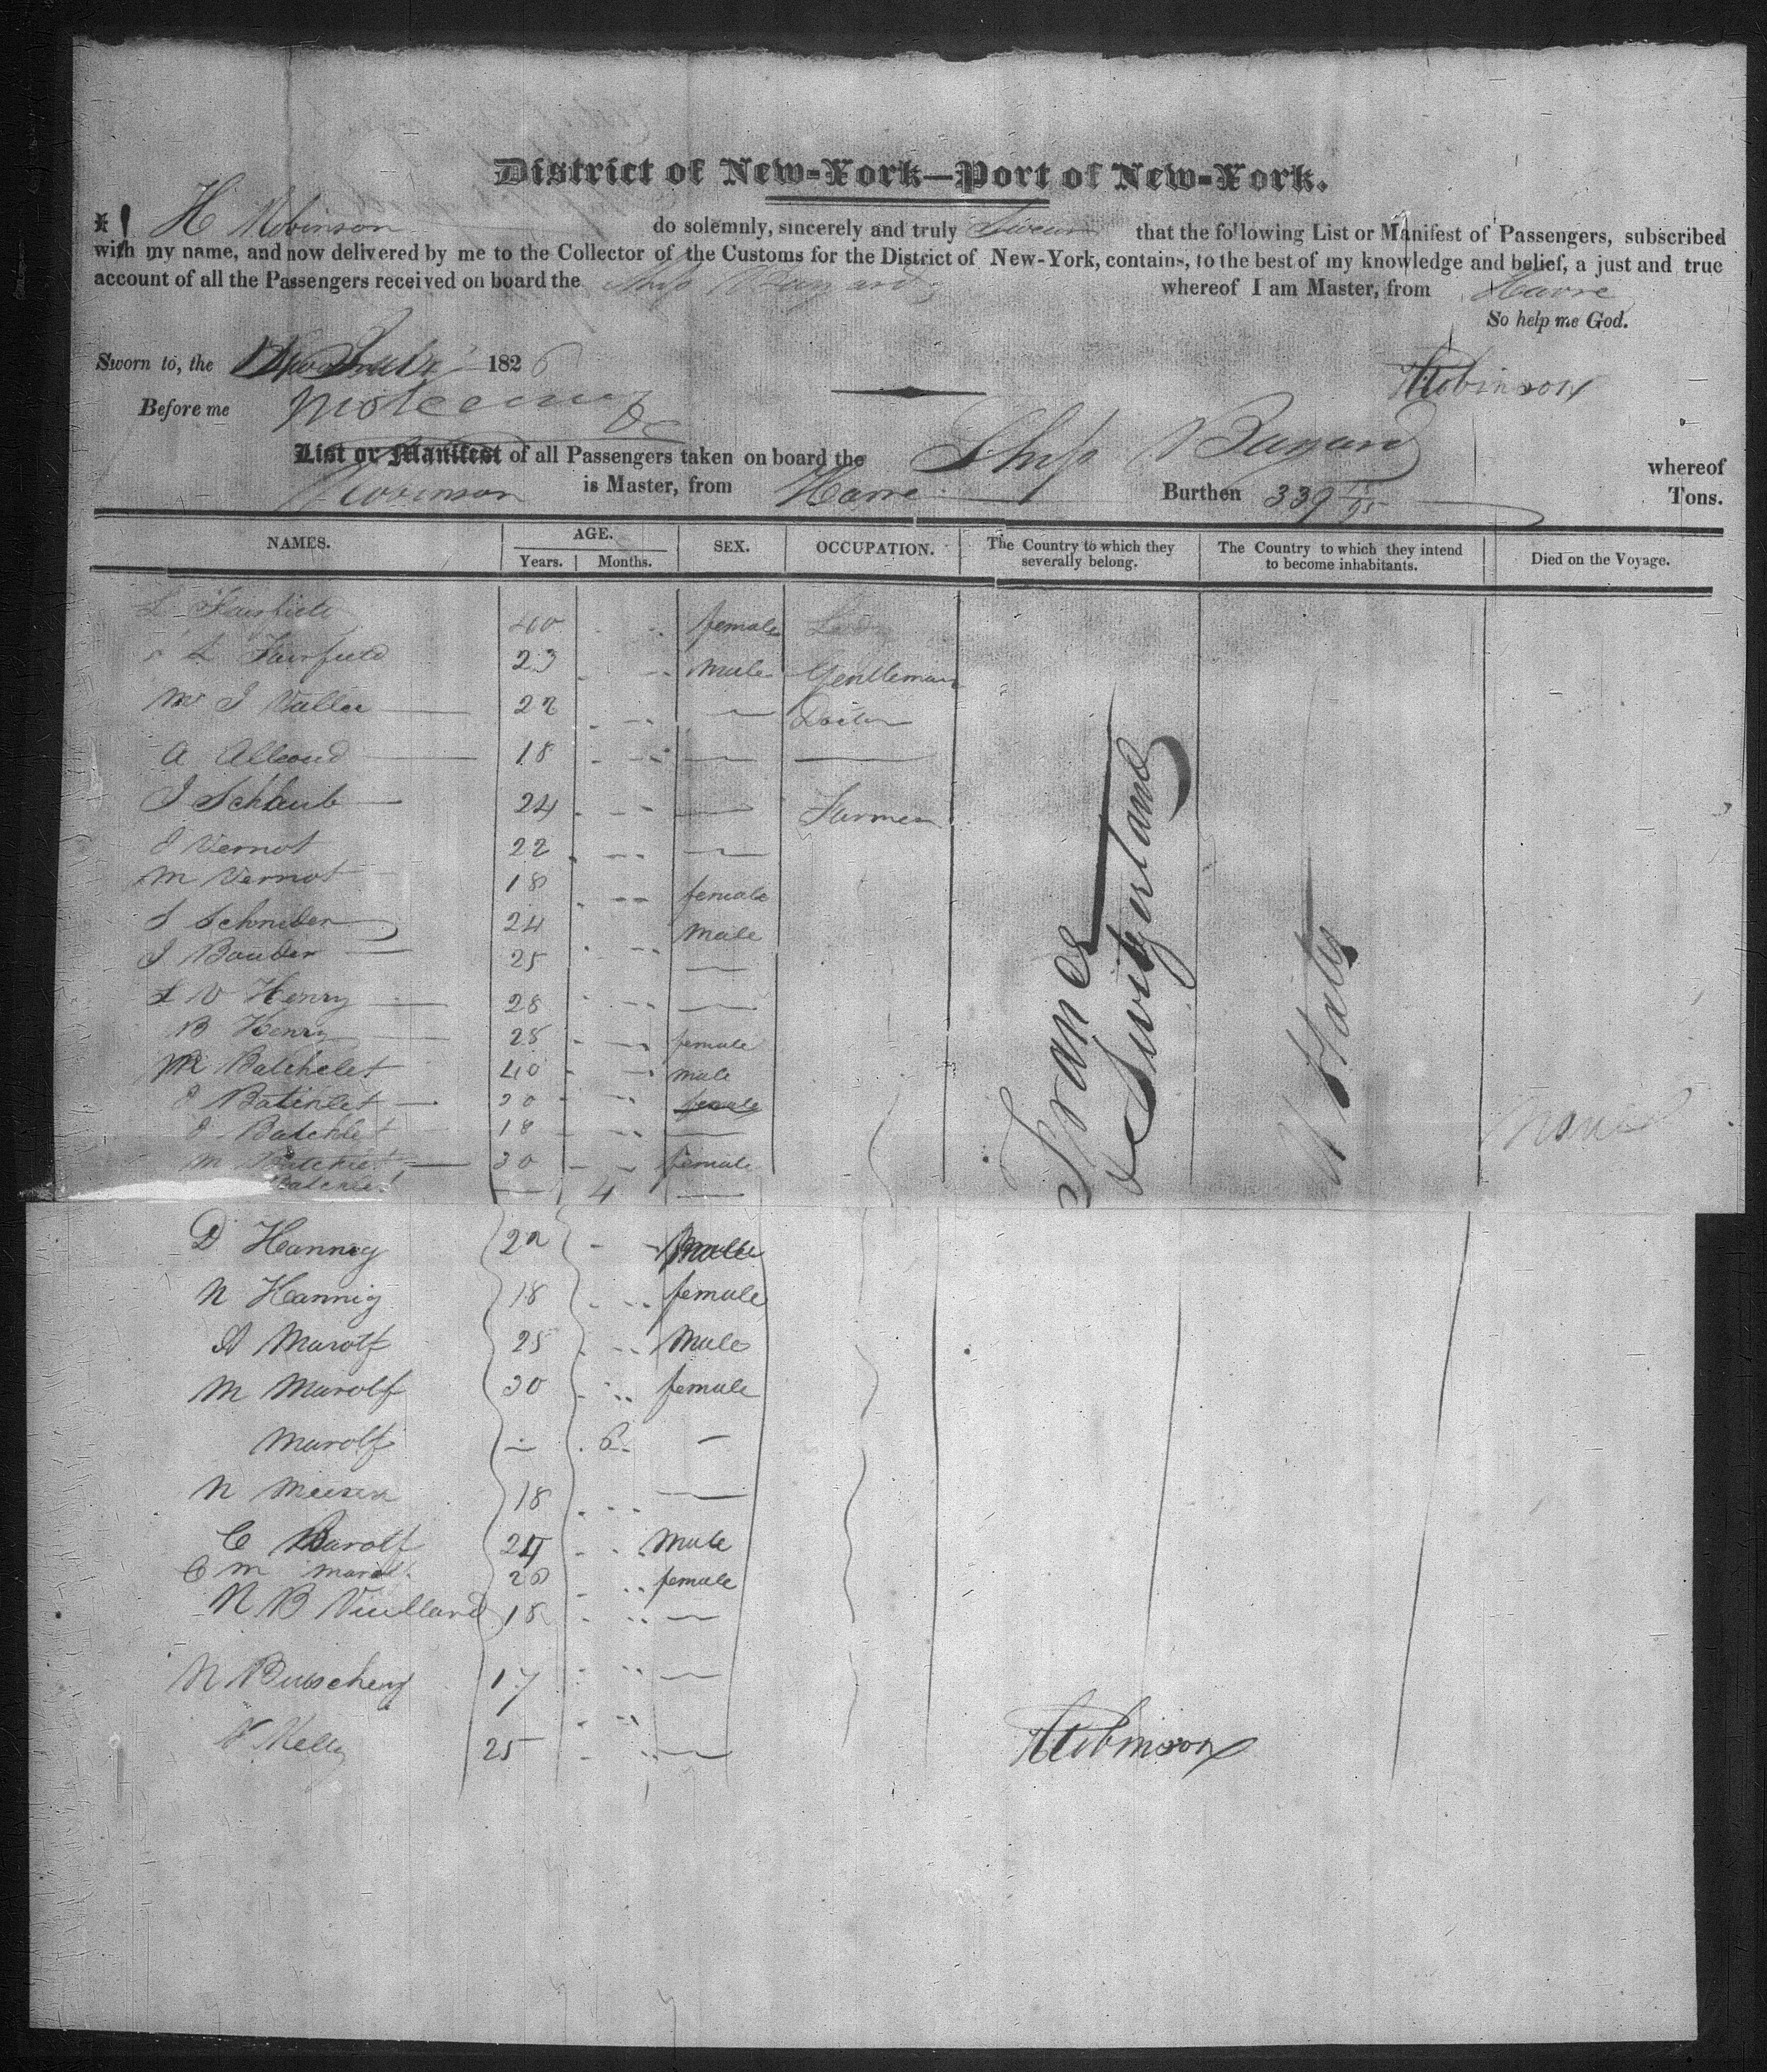 District of New-York—Port of New-York.
I, H Robinson do solemnly, sincerely and truly Swear that the following List or Manifest of Passengers, subscribed
with my name, and now delivered by me to the Collector of the Customs for the District of New-York, contains, to the best of my knowledge and belief, a just and true
account of all the Passengers received on board the Ship Bayard whereof I am Master, from Havre
So help me God.
Sworn to, the 1826
Before me
HRobinson
List or Manifest of all Passengers taken on board the Ship Bayard whereof
Robinson is Master, from Havre Burthen 339 /95 Tons.
NAMES. AGE. SEX. OCCUPATION. The Country to which they severally belong. The Country to which they intend to become inhabitants. Died on the Voyage.
Years. Months.
L Fairfield 40 female Lady
L Fairfield 23 Male Gentleman
Mr J Vallee 22 — Doctor
A 18 — —
J Schaub 24 — Farmer
J Vernot 22 —
M Vernot 18 female
S Schneider 24 Male
J Bauder 25 —
L V Henry 28 —
B Henry 28 female
M Batchelet 40 male
J Batchlet 20 female
J Batchlet 18 —
M Batchlet 30 female
Batchlet — 4 —
France & Switzerland
U States
None
D Hannig 22 Male
N Hannig 18 female
A Marolf 25 Male
M Marolf 30 female
Marolf — 6 —
N 18 —
C Marolf 24 Male
C M Marolf 20 female
N B Vuillard 18 —
N 17 —
V Kelly 25 —
HRobinson